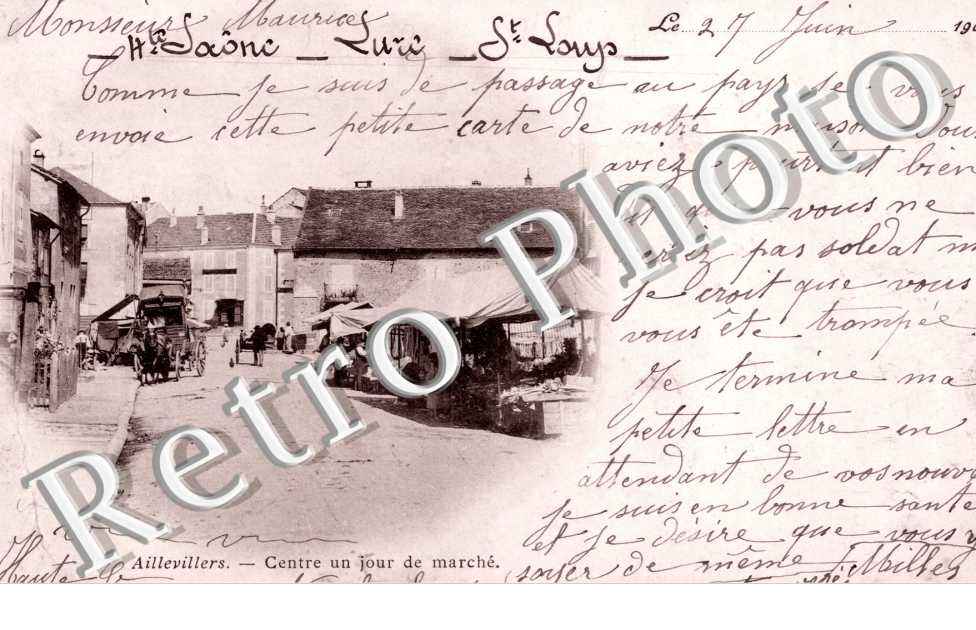 Monsieur Maurice
Hte Saône _ Lure _ St Loup _
Le 27 Juin 190
Comme je suis de passage au pays je vous
envoie cette petite carte de notre maison Vous
aviez pourtant bien
dit que vous ne
seriez pas soldat
je croit que vous
vous ête trompée
Je termine ma
petite lettre en
attendant de vos nouv
je suis en bonne sante
et je désire que vous
soyer de même
Aillevillers. — Centre un jour de marché.
Haute
Retro Photo